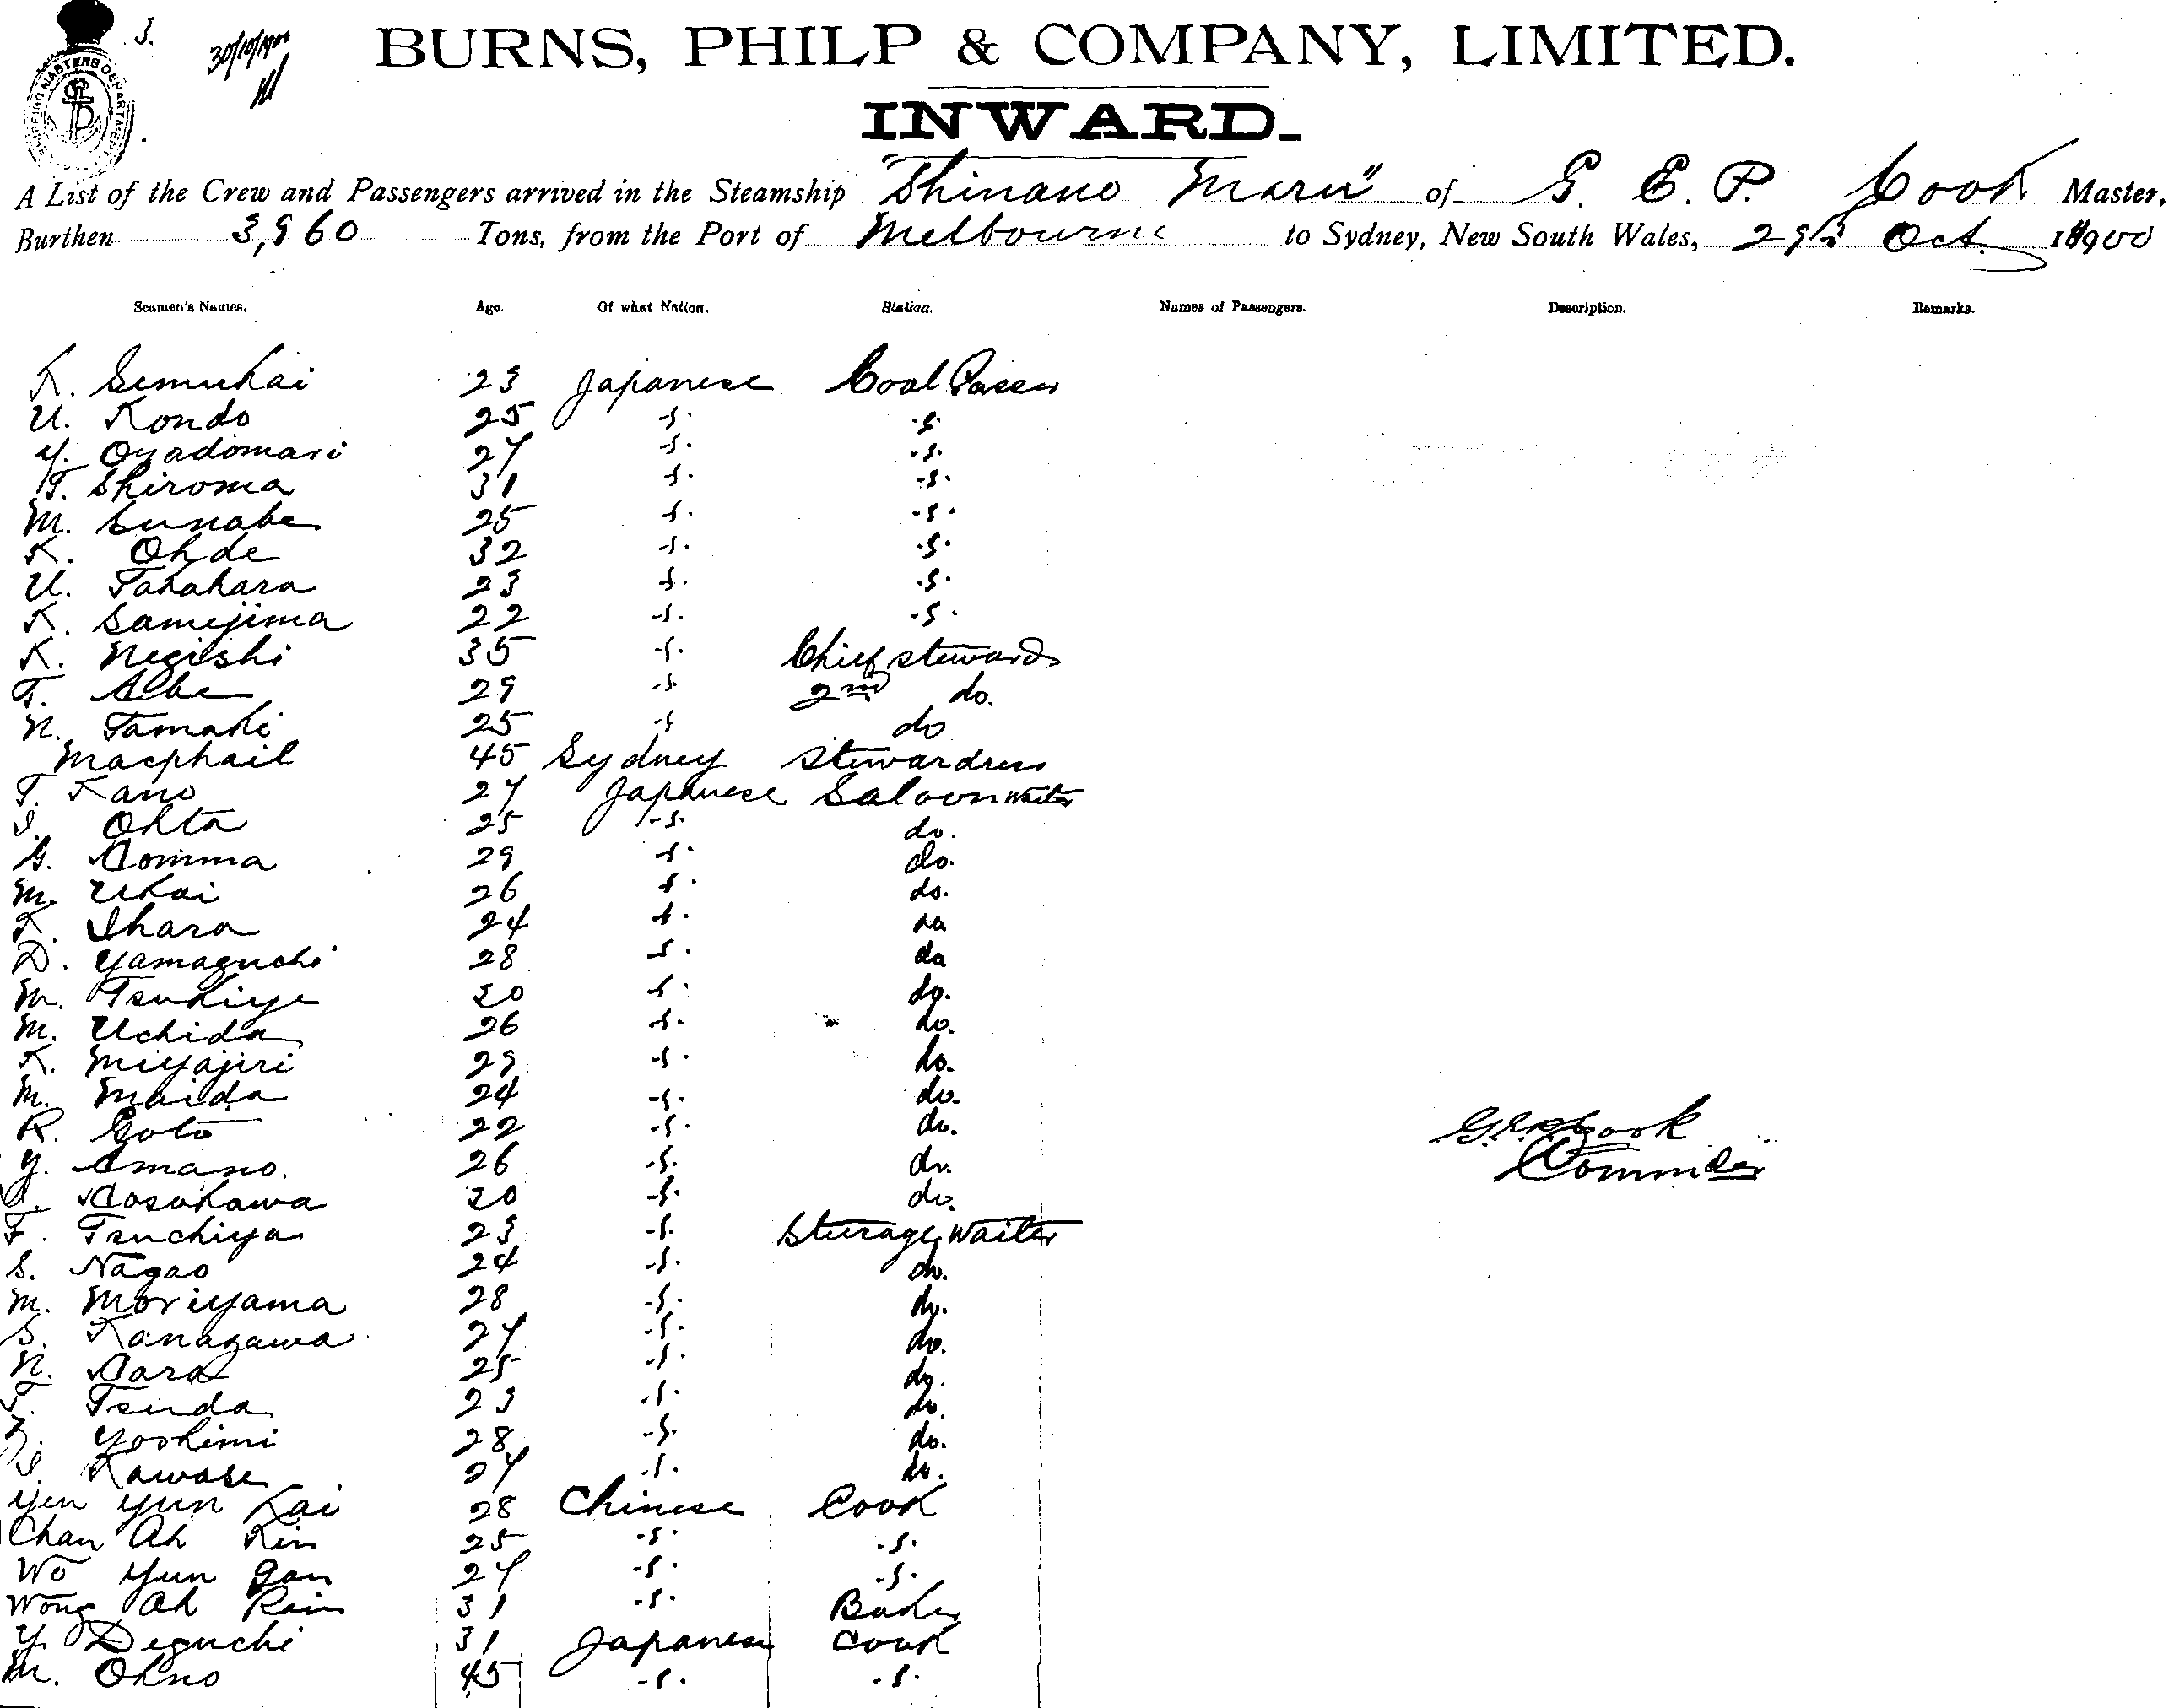 3.
30/10/1900
SHIPPING MASTERS DEPARTMENT
BURNS, PHILP & COMPANY, LIMITED.
INWARD.
A List of the Crew and Passengers arrived in the Steamship "Shinano Maru" of G. E. P. Cook Master,
Burthen 3,960 Tons, from the Port of Melbourne to Sydney, New South Wales, 29th Oct. 1900
Seamen's Names. Age. Of what Nation. Station. Names of Passengers. Description. Remarks.
K. Semukai 23 Japanese Coal Passer
U. Kondo 25 -s- -s-
Y. Oyadomari 27 -s- -s-
T. Shiroma 31 -s- -s-
M. Sunabe 25 -s- -s-
K. Ohde 32 -s- -s-
U. Takahara 23 -s- -s-
K. Samejima 22 -s- -s-
K. Negishi 35 -s- Chief steward
T. Abe 29 -s- 2nd do.
N. Tamaki 25 -s do
Macphail 45 Sydney Stewardess
T. Kano 27 Japanese Saloon waiter
I. Ohta 25 -s- do.
G. Homma 29 -s- do.
M. Ukai 26 -s- do.
K. Ihara 24 -s- do
D. Yamaguchi 28 -s- do
M. Tsukiye 20 -s- do.
M. Uchida 26 -s- do.
K. Miyajiri 29 -s- do.
M. Maida 24 -s- do.
R. Goto 22 -s- do.
Y. Amano. 26 -s- do.
Hosokawa 20 -s- do.
F. Tsuchiya 23 -s- Sturage Waiter
S. Nagao 24 -s- do.
M. Moriyama 28 -s- do.
S. Kanazawa 27 -s- do.
N. Hara 25 -s- do.
T. Tsuda 23 -s- do.
Yoshimi 28 -s- do.
I. Kawase 27 -s- do.
Yen Yun Kai 28 Chinese Cook
Chan Ah Kin 25 -s- -s-
Wo Yun Gan 27 -s- -s-
Wong Ah Kin 31 -s- Baker
Y. Deguchi 31 Japanese Cook
M. Ohno 45 -s- -s-
G.E.P. Cook
Commder